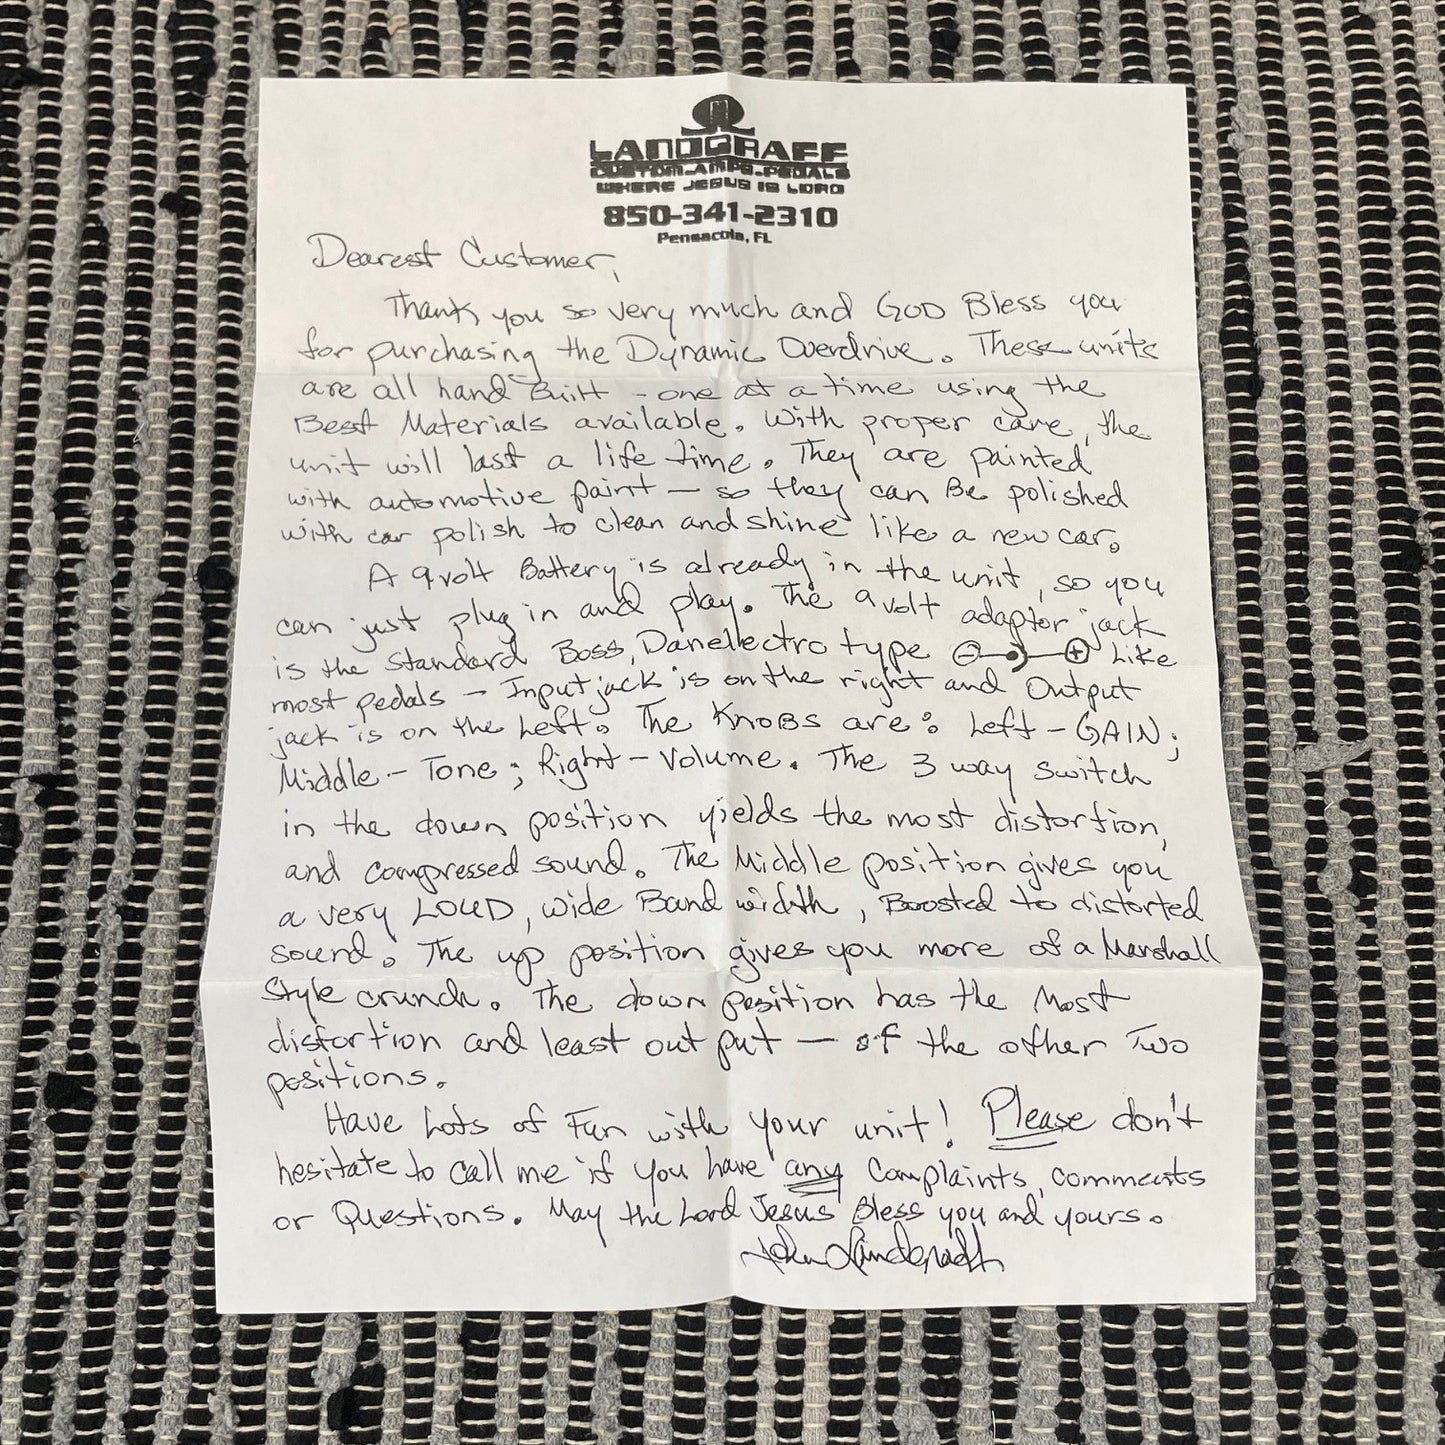 LANDGRAFF
CUSTOM-AMPS-PEDALS
WHERE JESUS IS LORD
850-341-2310
Pensacola, FL
Dearest Customer,
Thank you so very much and GOD Bless you
for purchasing the Dynamic Overdrive. These units
are all hand Built - one at a time using the
Best Materials available. With proper care, the
unit will last a life time. They are painted
with automotive paint — so they can Be polished
with car polish to clean and shine like a new car.
A 9volt Battery is already in the unit, so you
can just plug in and play. The 9volt adaptor jack
is the Standard Boss, Danelectro type ⊖—•)—⊕ Like
most pedals - Input jack is on the right and Output
jack is on the Left. The Knobs are: Left - GAIN;
Middle - Tone; Right - Volume. The 3 way Switch
in the down position yields the most distortion,
and compressed sound. The Middle position gives you
a very LOUD, wide Band width, Boosted to distorted
sound. The up position gives you more of a Marshall
Style crunch. The down position has the Most
distortion and least out put — of the other Two
positions.
Have Lots of Fun with your unit! Please don't
hesitate to call me if you have any Complaints, comments
or Questions. May the Lord Jesus Bless you and yours.
John Landgraff